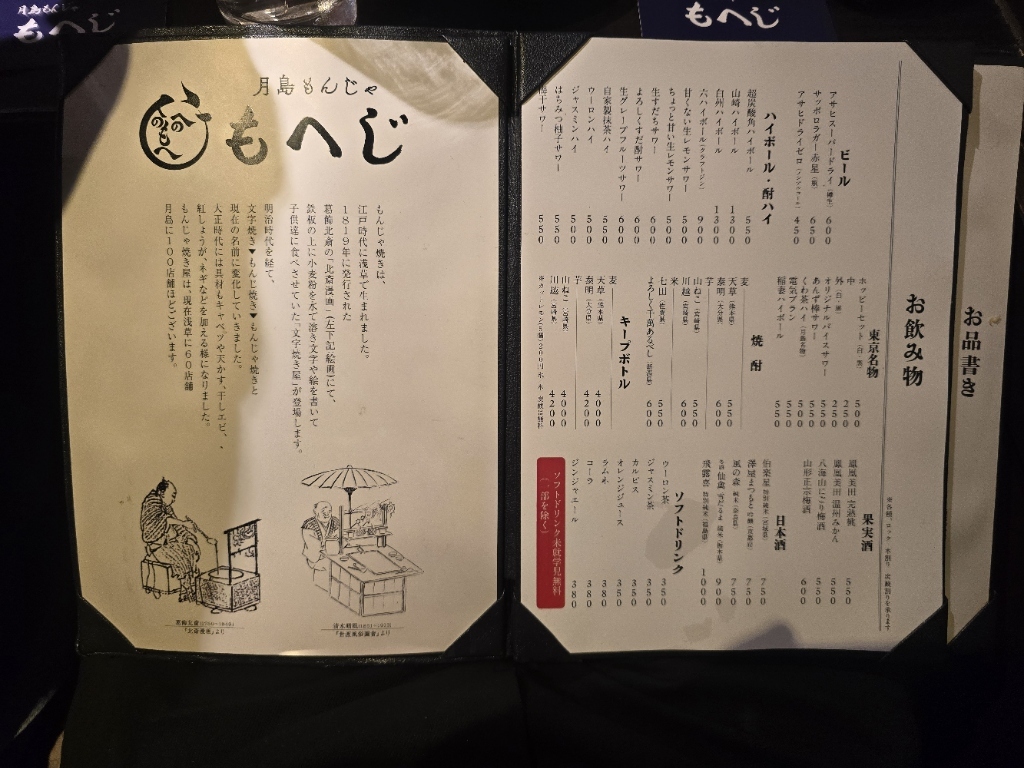 月島もんじゃ
もへじ
もへじ
月島もんじゃ
もへじ
もんじゃ焼きは、
江戸時代に浅草で生まれました。
1819年に発行された
葛飾北斎の「北斎漫画」(左下記絵画)にて、
鉄板の上に小麦粉を水で溶き文字や絵を書いて
子供達に食べさせていた「文字焼き屋」が登場します。
明治時代を経て、
文字焼き▼もんじ焼き▼もんじゃ焼きと
現在の名前に変化していきました。
大正時代には具材もキャベツや天かす、干しエビ、
紅しょうが、ネギなどを加える様になりました。
もんじゃ焼き屋は、現在浅草に60店舗
月島に100店舗ほどございます。
葛飾北斎
「北斎漫画」より
清水晴風
「世渡風俗圖會」より
お品書き
お飲み物
ビール
アサヒスーパードライ 600
サッポロラガー赤星 650
アサヒドライゼロ 450
ハイボール・酎ハイ
超炭酸角ハイボール 550
山崎ハイボール 1300
白州ハイボール 1300
六ハイボール(クラフトジン) 900
甘くない生レモンサワー 500
ちょっと甘い生レモンサワー 500
生すだちサワー 600
よろしくすだ酎サワー 600
生グレープフルーツサワー 600
自家製抹茶ハイ 550
ウーロンハイ 500
ジャスミンハイ 500
はちみつ柚子サワー 550
梅干サワー 550
東京名物
ホッピーセット 500
中 250
外 250
オリジナルバイスサワー 500
あんず檸サワー 550
くわ茶ハイ 500
電気ブラン 550
稲妻ハイボール 550
焼酎
麦
天草(熊本県) 550
泰明(大分県) 600
芋
山ねこ(宮崎県) 550
川越(宮崎県) 600
米
七田(佐賀県) 550
よろしく千萬あるべし 600
キープボトル
麦
天草(熊本県) 4000
泰明(大分県) 4200
芋
山ねこ(宮崎県) 4000
川越(宮崎県) 4200
果実酒
鳳凰美田 完熟桃 550
鳳凰美田 温州みかん 550
八海山にごり梅酒 550
山形正宗梅酒 600
日本酒
伯楽星 特別純米(宮城県) 750
澤屋まつもと 750
風の森 750
仙禽 900
飛露喜 特別純米(福島県) 1000
ソフトドリンク
ウーロン茶 350
ジャスミン茶 350
カルピス 350
オレンジジュース 350
ラムネ 380
コーラ 380
ジンジャエール 380
ソフトドリンク未就学児無料
(一部を除く)